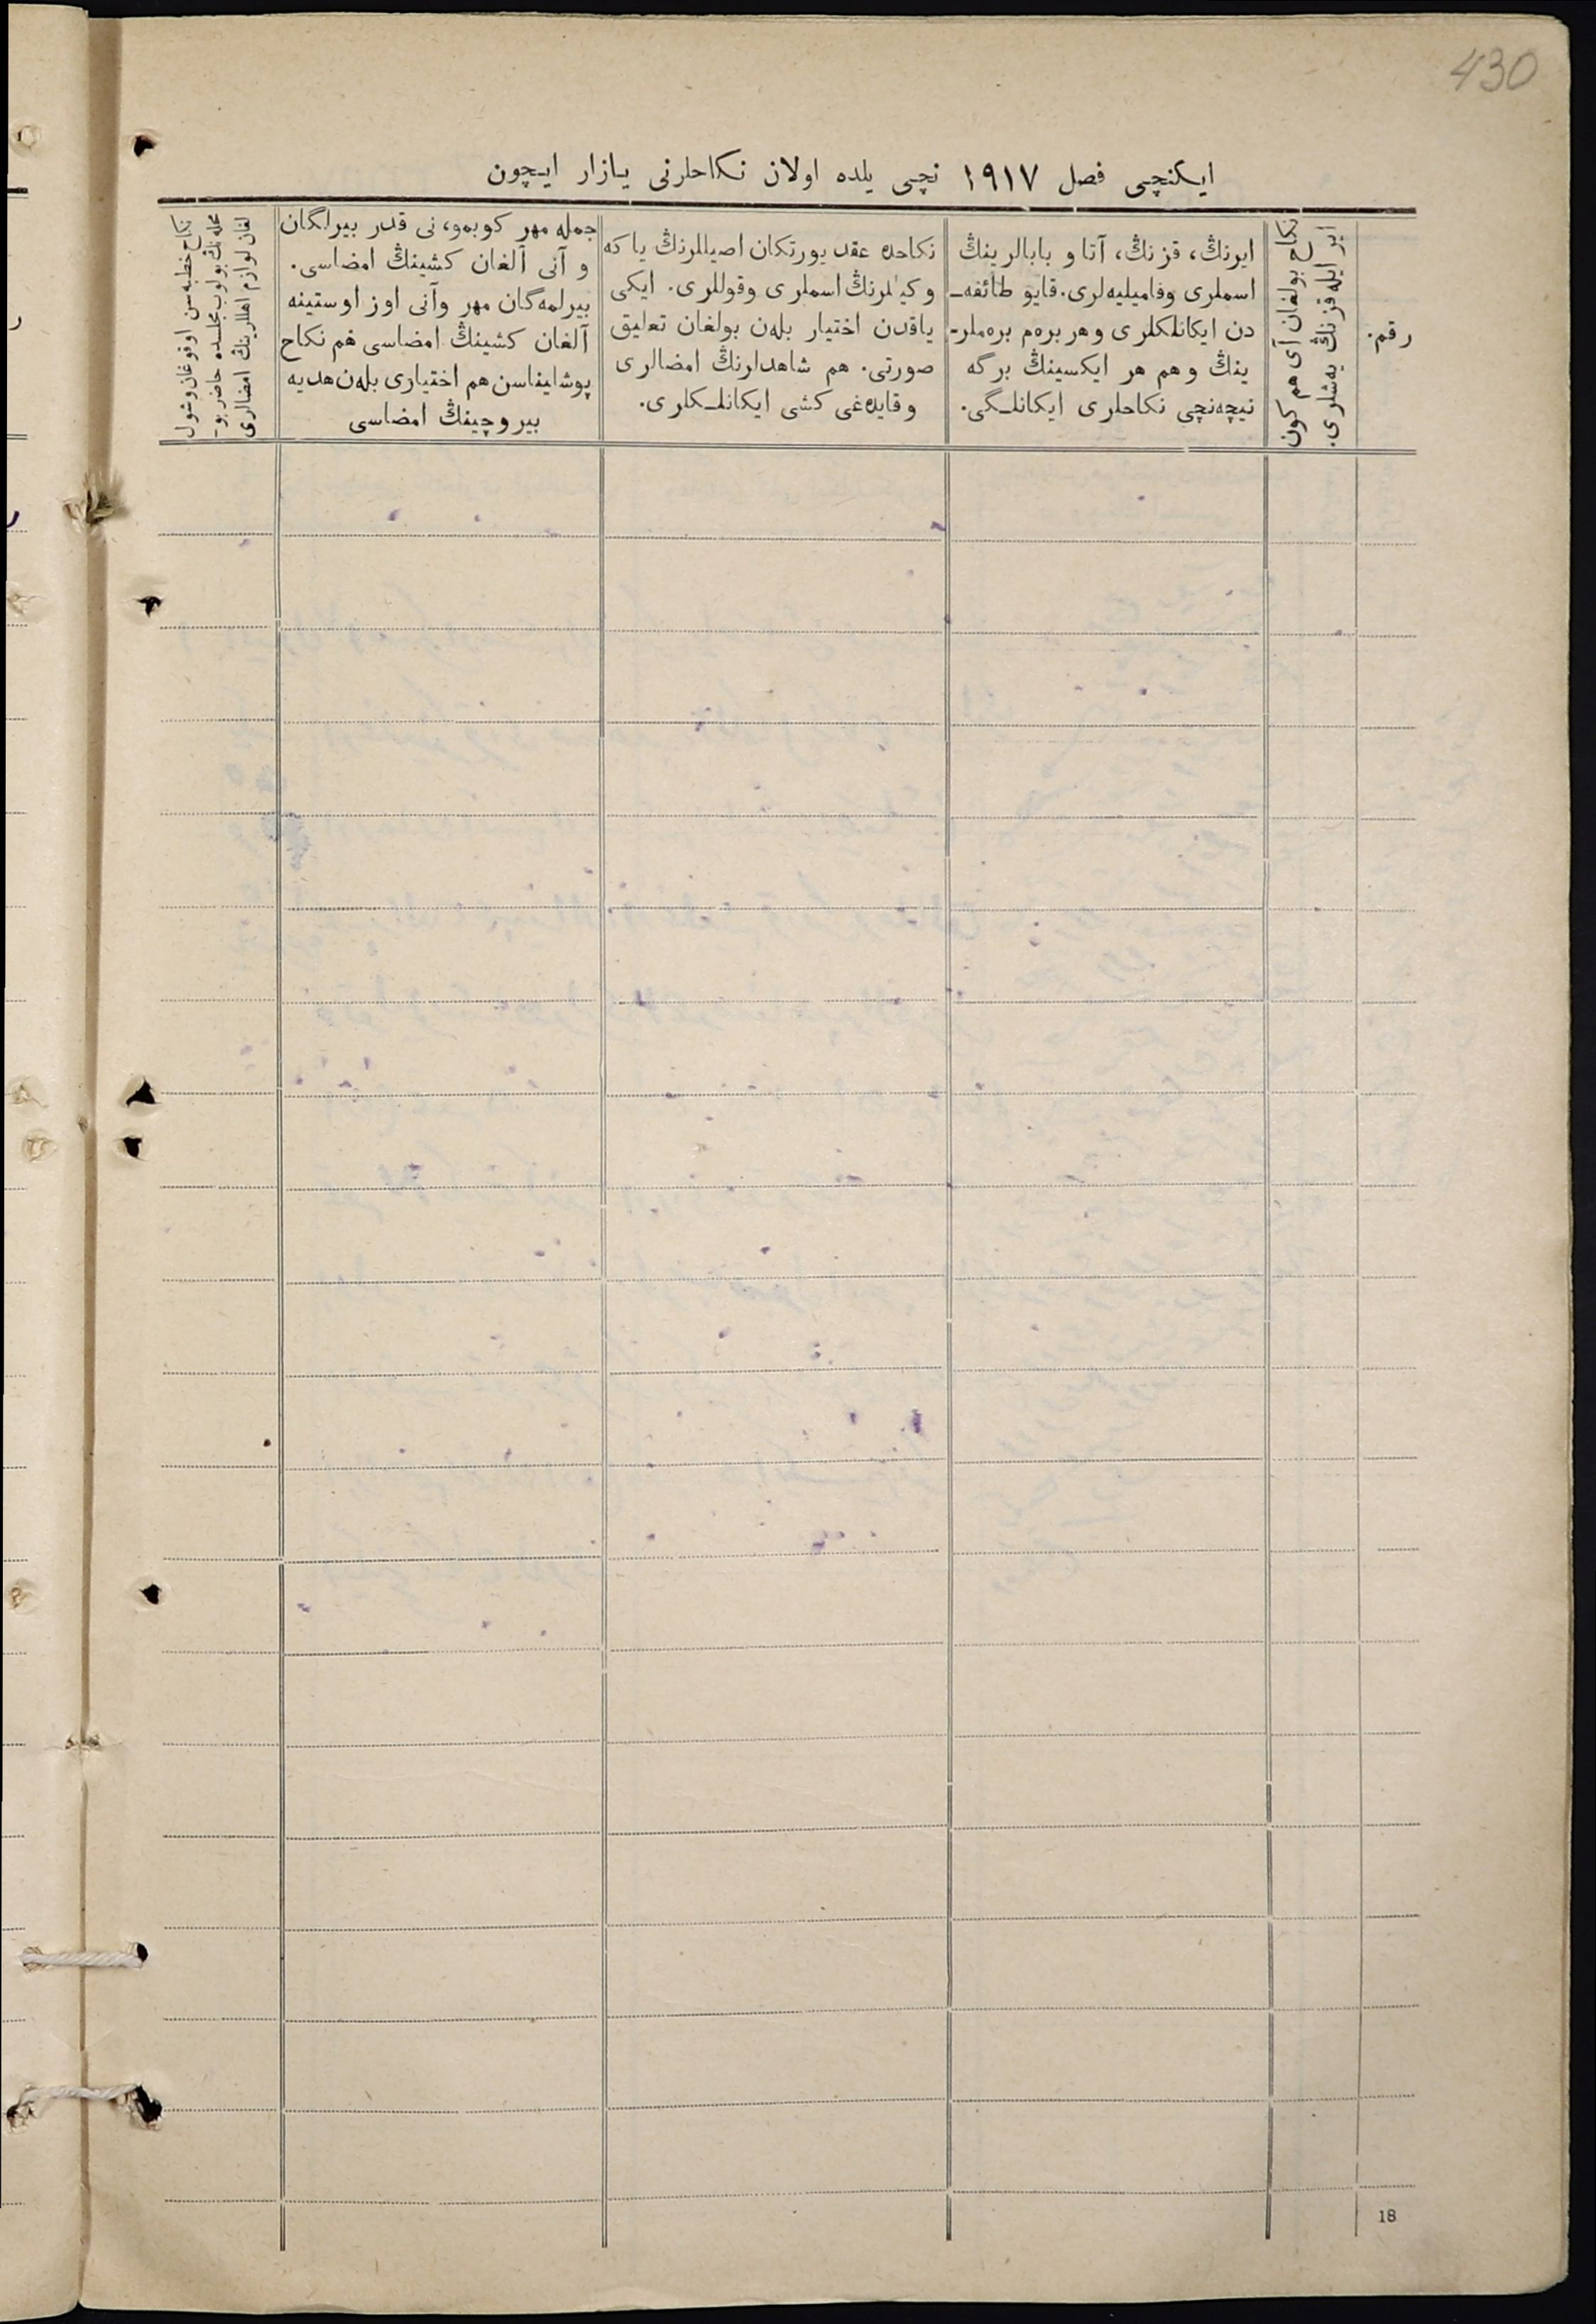 430
ایکنچی فصل ۱۹۱۷ نچی یلده اولان نکاحلرنی یازار ایچون
رقم.
نکاح بولغان آی هم کون
ایر ایله قزنڭ یه‌شلری.
ایرنڭ، قزنڭ، آتا و بابالرینڭ
اسملری وفامیلیه‌لری. قایو طائفه‌ـ
دن ایکانلکلری وهر بره‌م بره‌ملرـ
ینڭ وهم هر ایکسینڭ برگه
نیچه‌نچی نکاحلری ایکانلـگی.
نکاحده عقد یورتکان اصیللرنڭ یا که
وکیللرنڭ اسملری وقوللری. ایکی
یاقدن اختیار بله‌ن بولغان تعلیق
صورتی. هم شاهدلرنڭ امضالری
وقایده‌غی کشی ایکانلـکلری.
جمله مهر کوبمو، نی قدر بیرلگان
و آنی آلغان کشینڭ امضاسی.
بیرلمه‌گان مهر وآنی اوز اوستینه
آلغان کشینڭ امضاسی هم نکاح
پوشلیناسن هم اختیاری بله‌ن هدیه
بیروچینڭ امضاسی
نکاح خطبه‌سن اوقوغان وشول
محله‌نڭ بولوب مجلسده حاضر بوـ
لغان لوازم اهللرینڭ امضالری
18